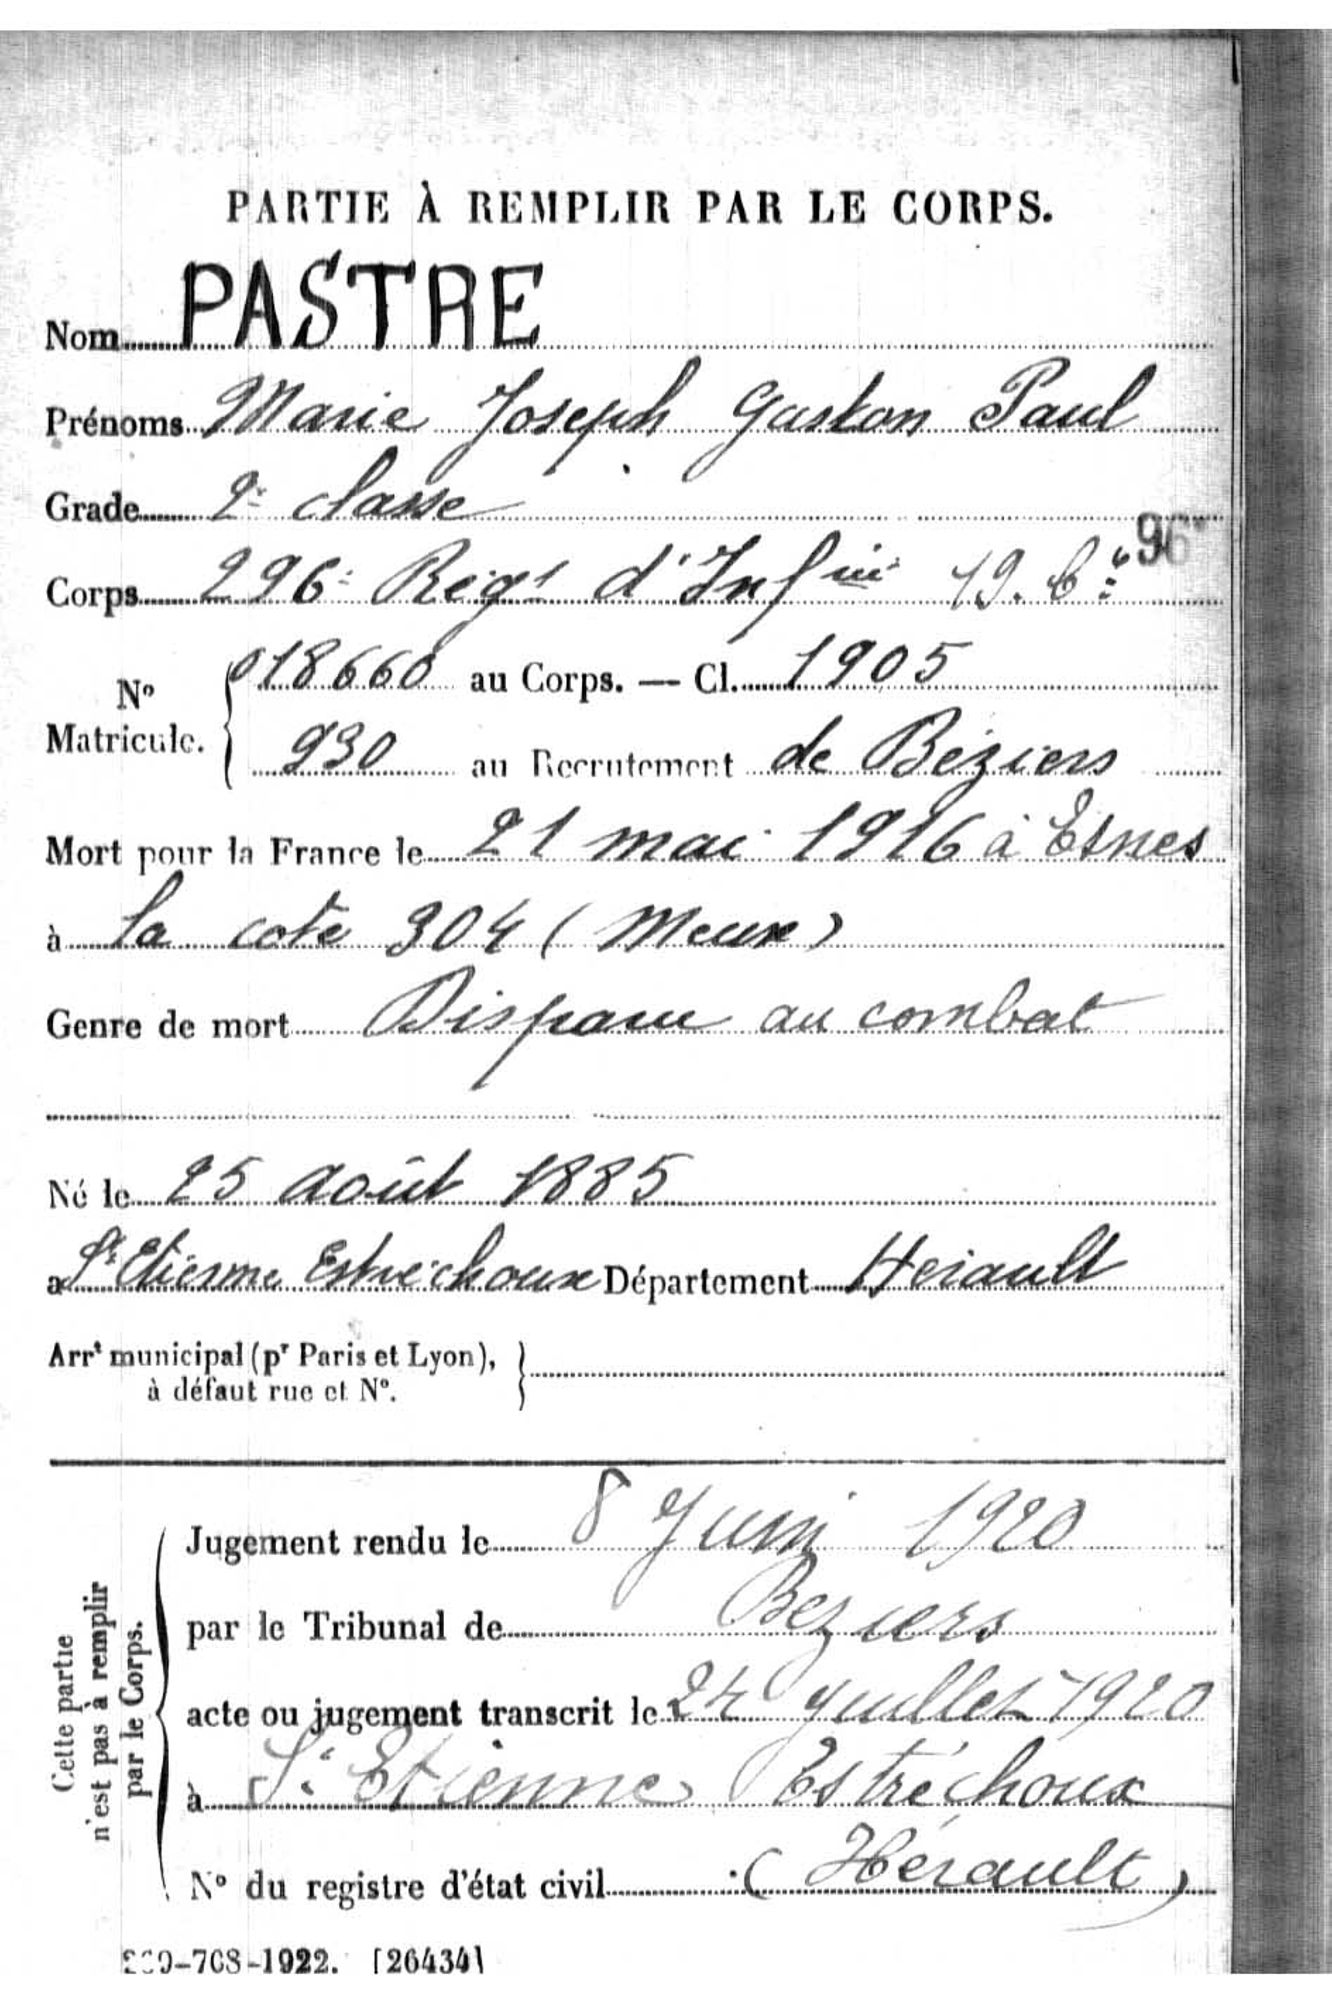 PARTIE À REMPLIR PAR LE CORPS.
Nom PASTRE
Prénoms Marie Joseph Gaston Paul
Grade 2e classe
96e
Corps 296e Régt d'Infrie 19. Cie
018660 au Corps. — Cl. 1905
No Matricule.
930 au Recrutement de Béziers
Mort pour la France le 21 mai 1916 à Esnes
à la cote 304 (Meuse)
Genre de mort Disparu au combat
Né le 25 Août 1885
à St Etienne Estréchoux Département Hérault
Arrt municipal (pr Paris et Lyon),
à défaut rue et No.
Cette partie
n'est pas à remplir
par le Corps.
Jugement rendu le 8 Juin 1920
par le Tribunal de Béziers
acte ou jugement transcrit le 24 Juillet 1920
à St Etienne Estréchoux
No du registre d'état civil (Hérault)
-708-1922. [26434]